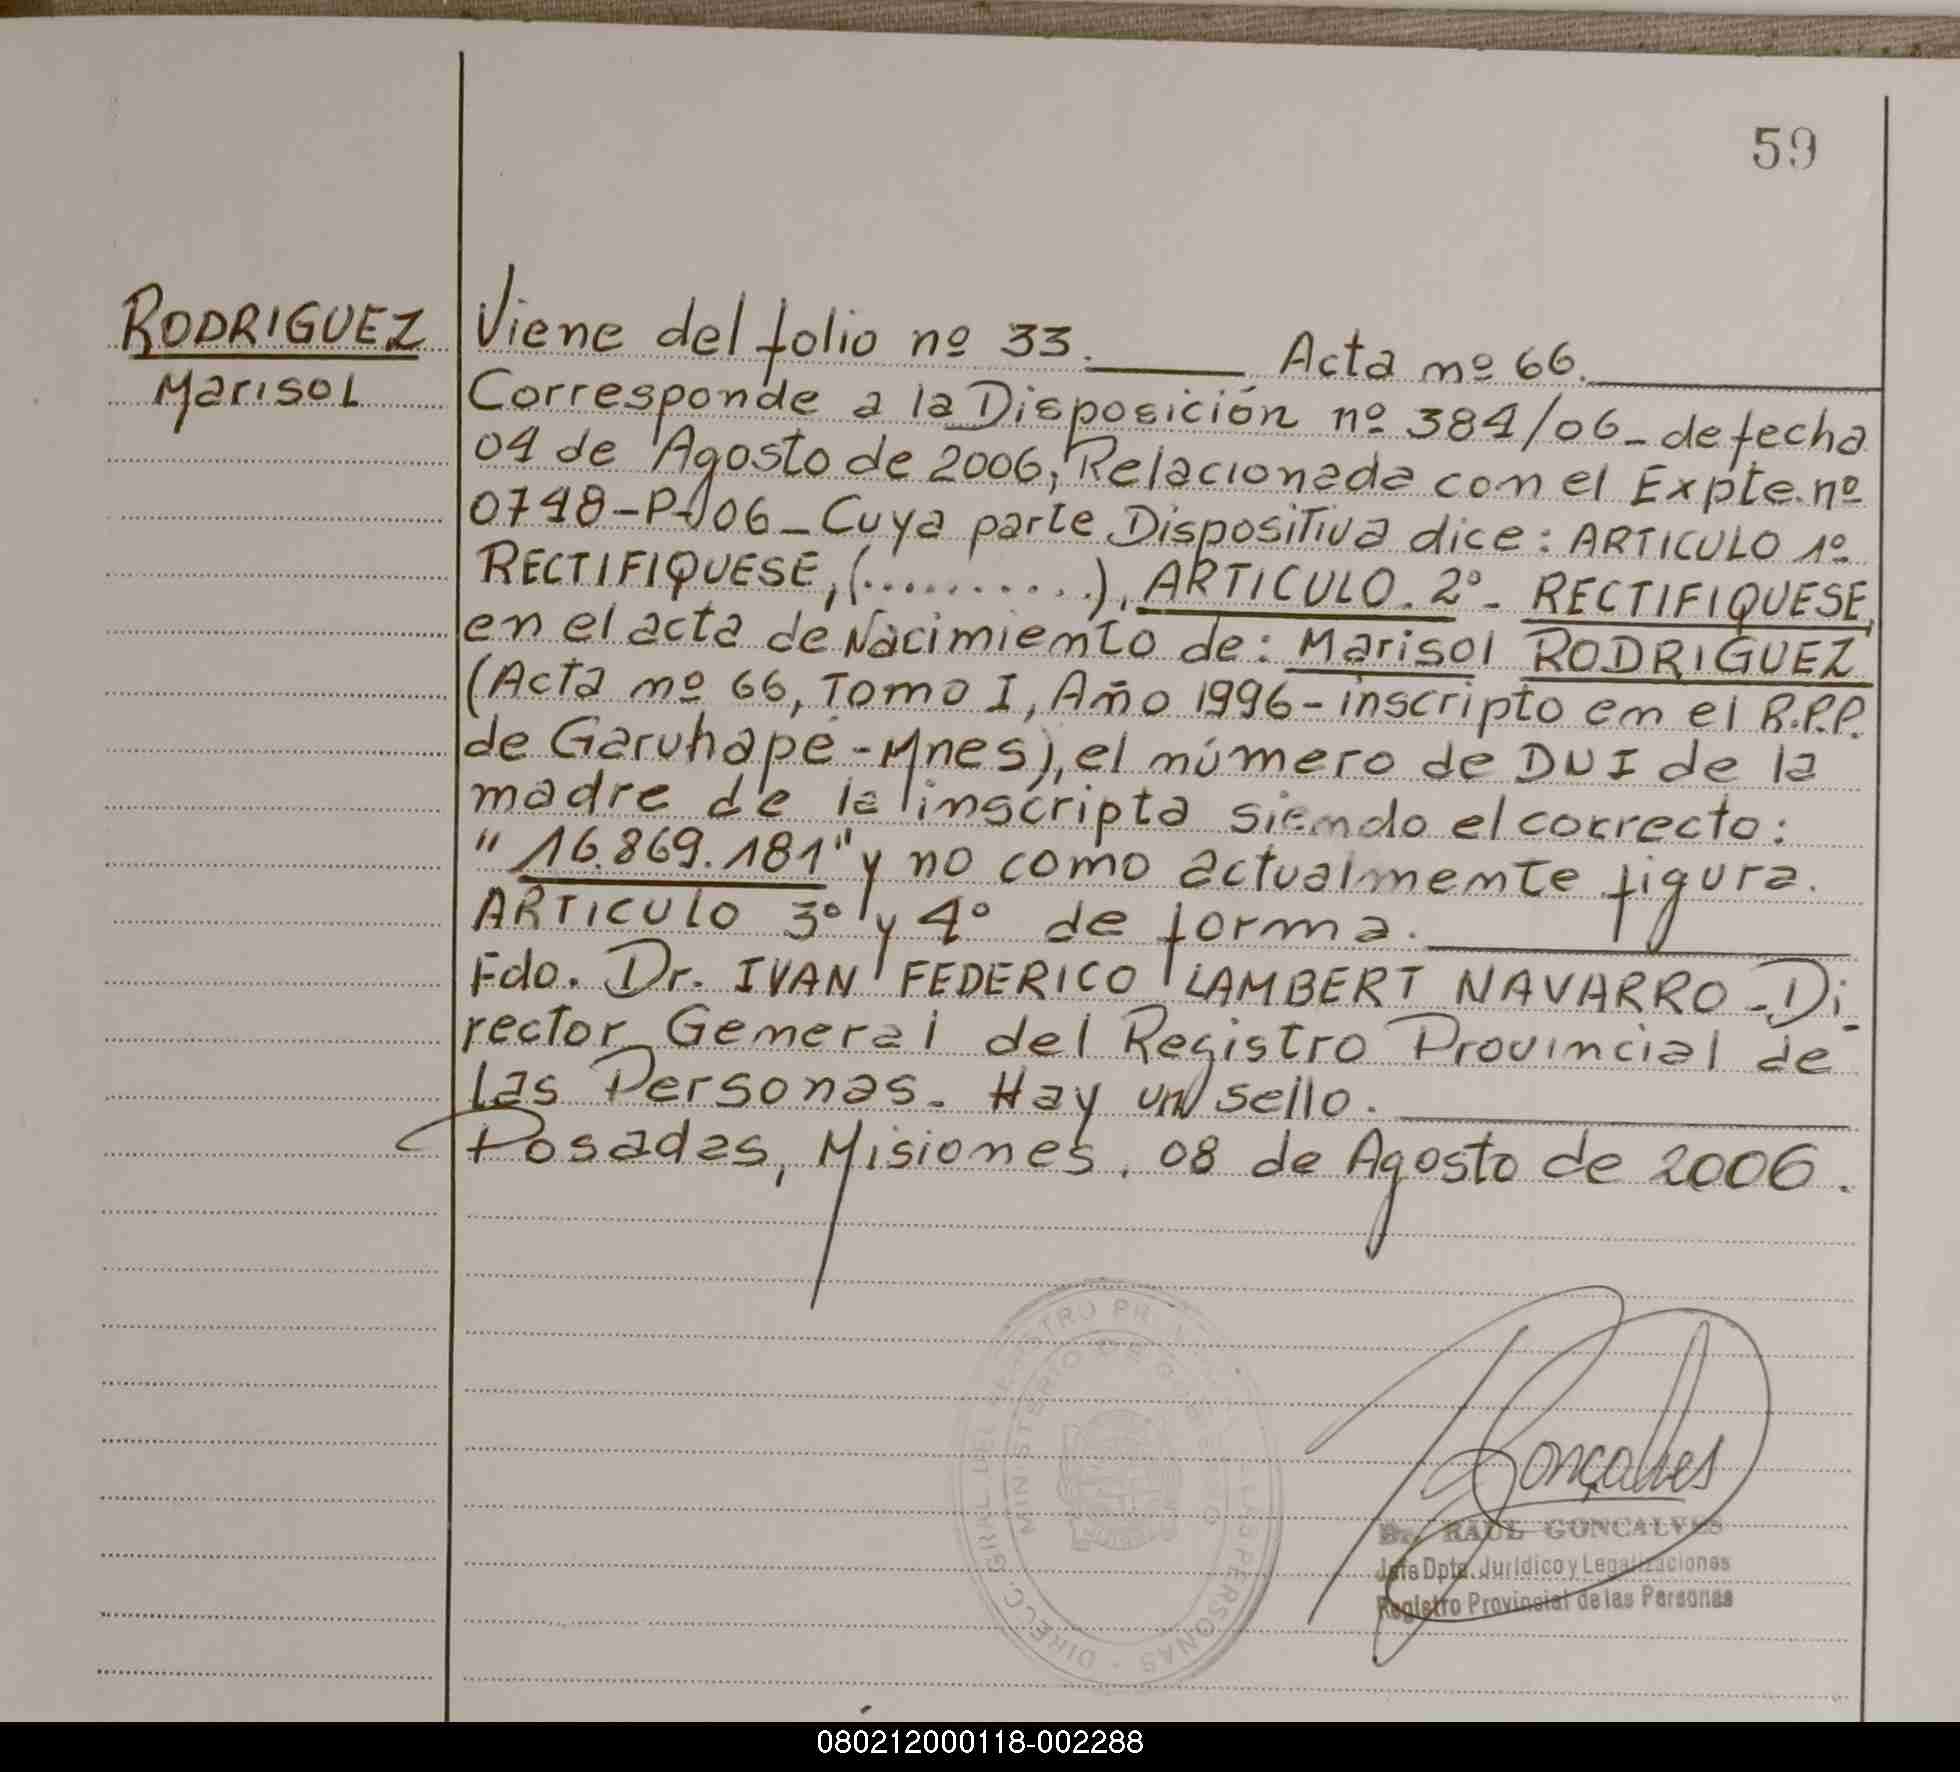 59
RODRIGUEZ
Marisol
Viene del folio nº 33. Acta nº 66.
Corresponde a la Disposición nº 384/06_ de fecha
04 de Agosto de 2006, Relacionada con el Expte. nº
0748-P-06_ Cuya parte Dispositiva dice: ARTICULO 1º
RECTIFIQUESE, (..........), ARTICULO. 2º- RECTIFIQUESE,
en el acta de Nacimiento de: Marisol RODRIGUEZ
(Acta nº 66, Tomo I, Año 1996-inscripto en el R.P.P.
de Garuhape-Mnes), el número de DNI de la
madre de la inscripta siendo el correcto:
"16.869.181" y no como actualmente figura.
ARTICULO 3º y 4º de forma.
Fdo. Dr. IVAN FEDERICO LAMBERT NAVARRO-Di-
rector General del Registro Provincial de
las Personas. Hay un sello.
Posadas, Misiones, 08 de Agosto de 2006.
MINISTERIO DE GOBIERNO
DIRECC. GRAL. DEL REGISTRO PROV. LAS PERSONAS
Gonçalves
Dr. RAUL GONCALVES
Jefe Dpto. Jurídico y Legalizaciones
Registro Provincial de las Personas
080212000118-002288